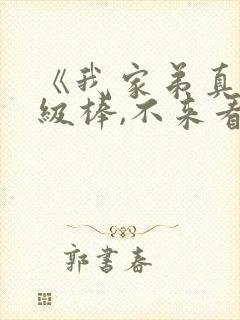 《我家弟真
級棒,不来看
郭書春